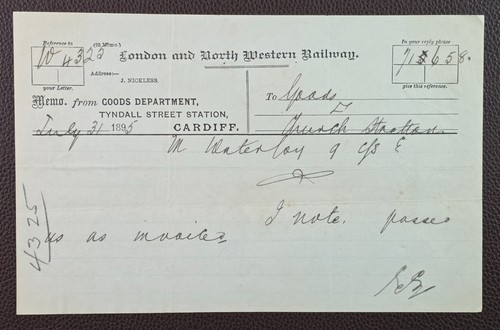 Reference to
(93 Memo.)
In your reply please
W 4325
London and North Western Railway.
71 658.
your Letter.
Address:—
J. NICKLESS.
give this reference.
Memo. from GOODS DEPARTMENT,
To Goods
TYNDALL STREET STATION,
July 31 1895
CARDIFF.
Church Stretton
M Waterloo 9 C/s E
I note. passes
us as
4325